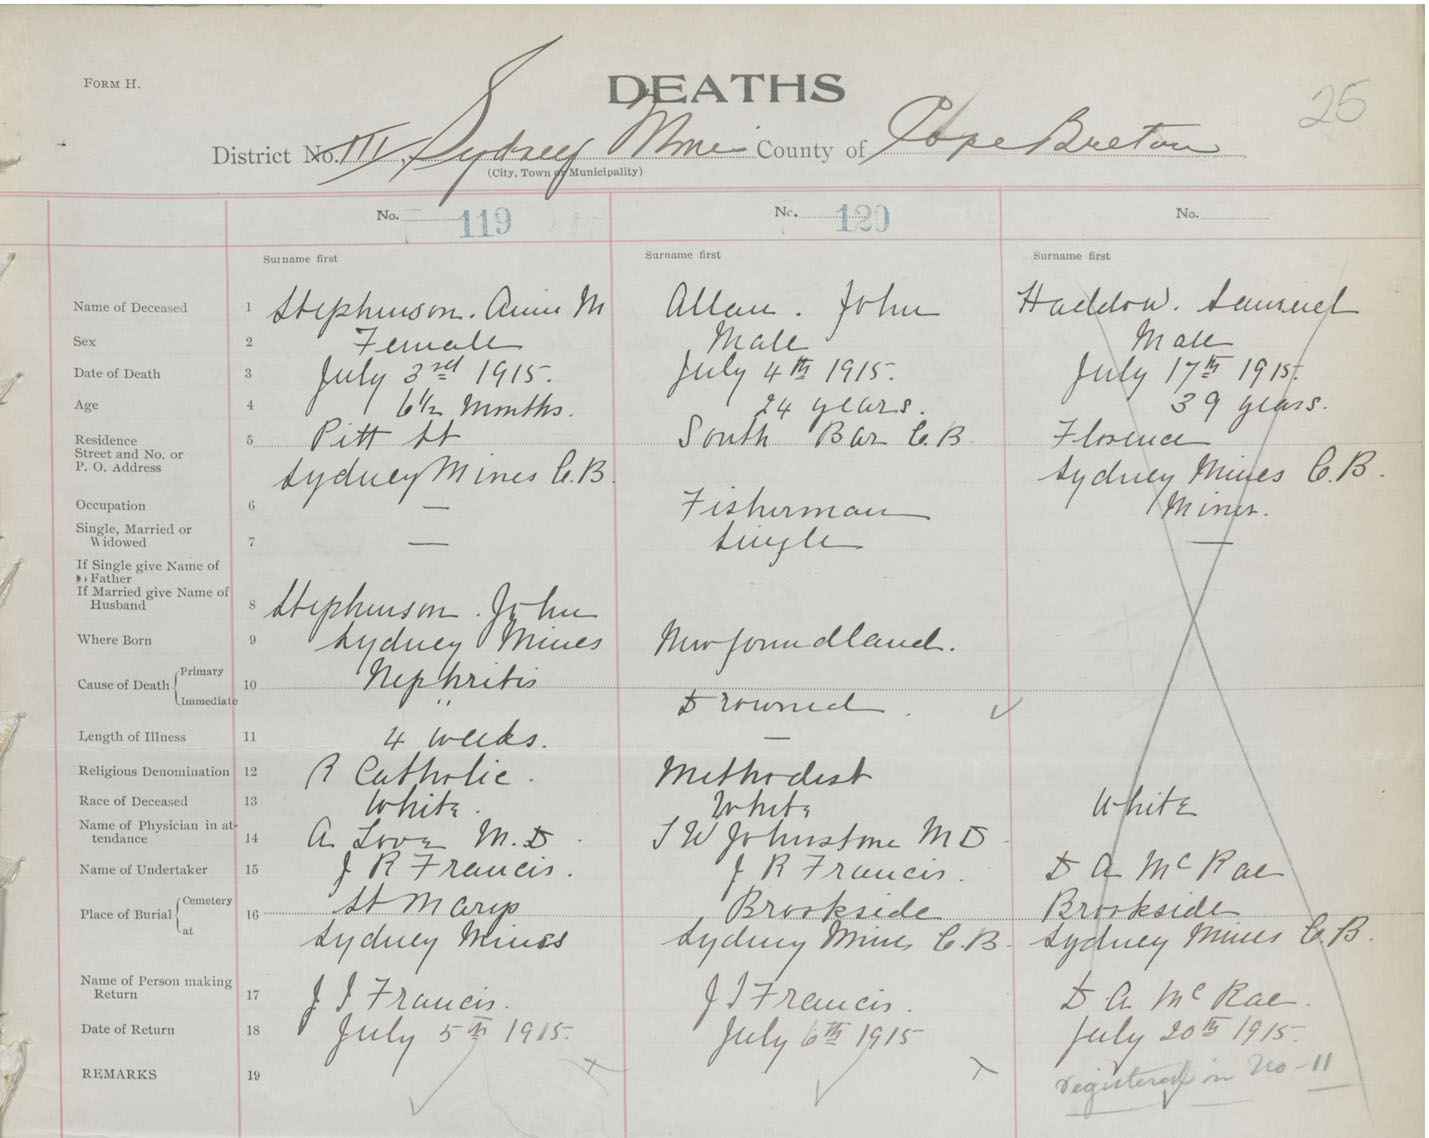 FORM H.
DEATHS
25
District No. III, Sydney Mines County of Cape Breton
(City, Town or Municipality)
No. 119 No. 120 No.
Surname first Surname first Surname first
Name of Deceased 1 Stephenson. Annie M Allan. John Haddow. Samuel
Sex 2 Female Male Male
Date of Death 3 July 3rd 1915. July 4th 1915. July 17th 1915.
Age 4 6 1/2 Months. 24 years. 39 years.
Residence 5 Pitt St South Bar C.B. Florence
Street and No. or
P. O. Address Sydney Mines C.B. Sydney Mines C.B.
Occupation 6 — Fisherman Miner.
Single, Married or
Widowed 7 — Single —
If Single give Name of
Father
If Married give Name of
Husband 8 Stephenson. John
Where Born 9 Sydney Mines Newfoundland.
Cause of Death Primary 10 Nephritis
Immediate " Drowned.
Length of Illness 11 4 weeks. —
Religious Denomination 12 R Catholic. Methodist
Race of Deceased 13 White. White White
Name of Physician in at-
tendance 14 A Love M.D. T W Johnstone M D.
Name of Undertaker 15 J R Francis. J R Francis. D A McRae
Place of Burial Cemetery 16 St Marys Brookside Brookside
at Sydney Mines Sydney Mines C.B. Sydney Mines C.B.
Name of Person making
Return 17 J J Francis. J J Francis. D A McRae.
Date of Return 18 July 5th 1915. July 6th 1915 July 20th 1915.
REMARKS 19 registered in No-11